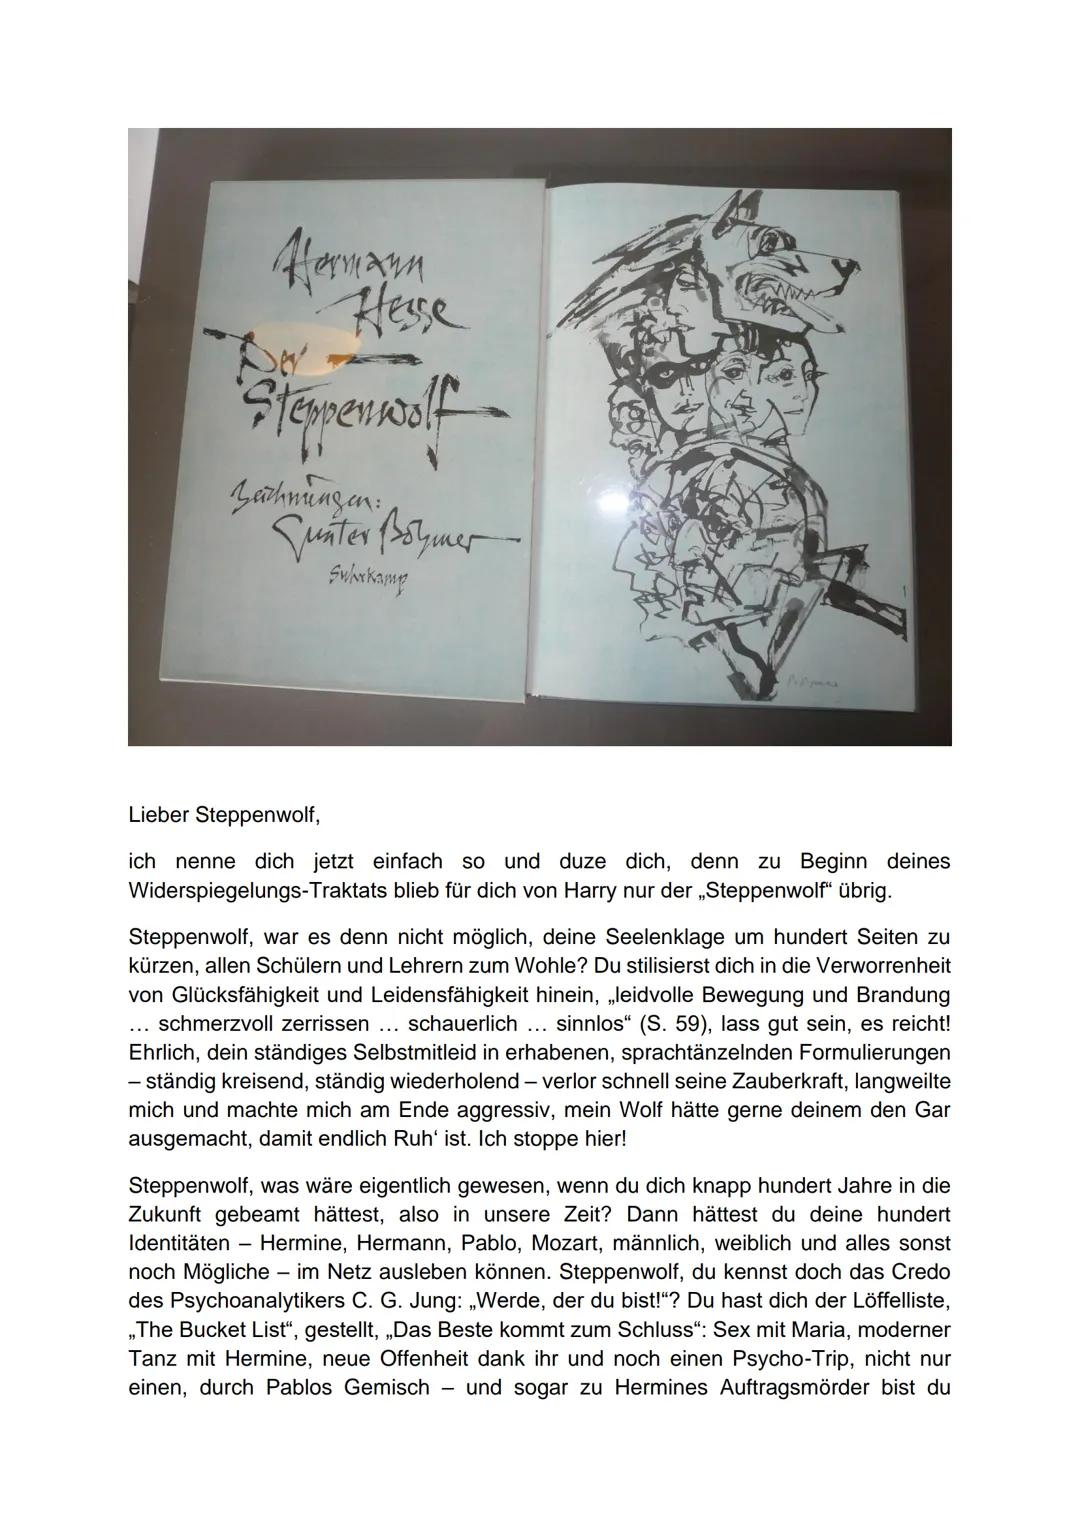 Hermann
Hesse
Der
Steppenwolf
Zeichnungen:
Gunter Böhmer
Suhrkamp
Lieber Steppenwolf,
ich nenne dich jetzt einfach so und duze dich, denn zu Beginn deines
Widerspiegelungs-Traktats blieb für dich von Harry nur der „Steppenwolf“ übrig.
Steppenwolf, war es denn nicht möglich, deine Seelenklage um hundert Seiten zu
kürzen, allen Schülern und Lehrern zum Wohle? Du stilisierst dich in die Verworrenheit
von Glücksfähigkeit und Leidensfähigkeit hinein, „leidvolle Bewegung und Brandung
… schmerzvoll zerrissen … schauerlich … sinnlos“ (S. 59), lass gut sein, es reicht!
Ehrlich, dein ständiges Selbstmitleid in erhabenen, sprachtänzelnden Formulierungen
– ständig kreisend, ständig wiederholend – verlor schnell seine Zauberkraft, langweilte
mich und machte mich am Ende aggressiv, mein Wolf hätte gerne deinem den Gar
ausgemacht, damit endlich Ruh‘ ist. Ich stoppe hier!
Steppenwolf, was wäre eigentlich gewesen, wenn du dich knapp hundert Jahre in die
Zukunft gebeamt hättest, also in unsere Zeit? Dann hättest du deine hundert
Identitäten – Hermine, Hermann, Pablo, Mozart, männlich, weiblich und alles sonst
noch Mögliche – im Netz ausleben können. Steppenwolf, du kennst doch das Credo
des Psychoanalytikers C. G. Jung: „Werde, der du bist!“? Du hast dich der Löffelliste,
„The Bucket List“, gestellt, „Das Beste kommt zum Schluss“: Sex mit Maria, moderner
Tanz mit Hermine, neue Offenheit dank ihr und noch einen Psycho-Trip, nicht nur
einen, durch Pablos Gemisch – und sogar zu Hermines Auftragsmörder bist du